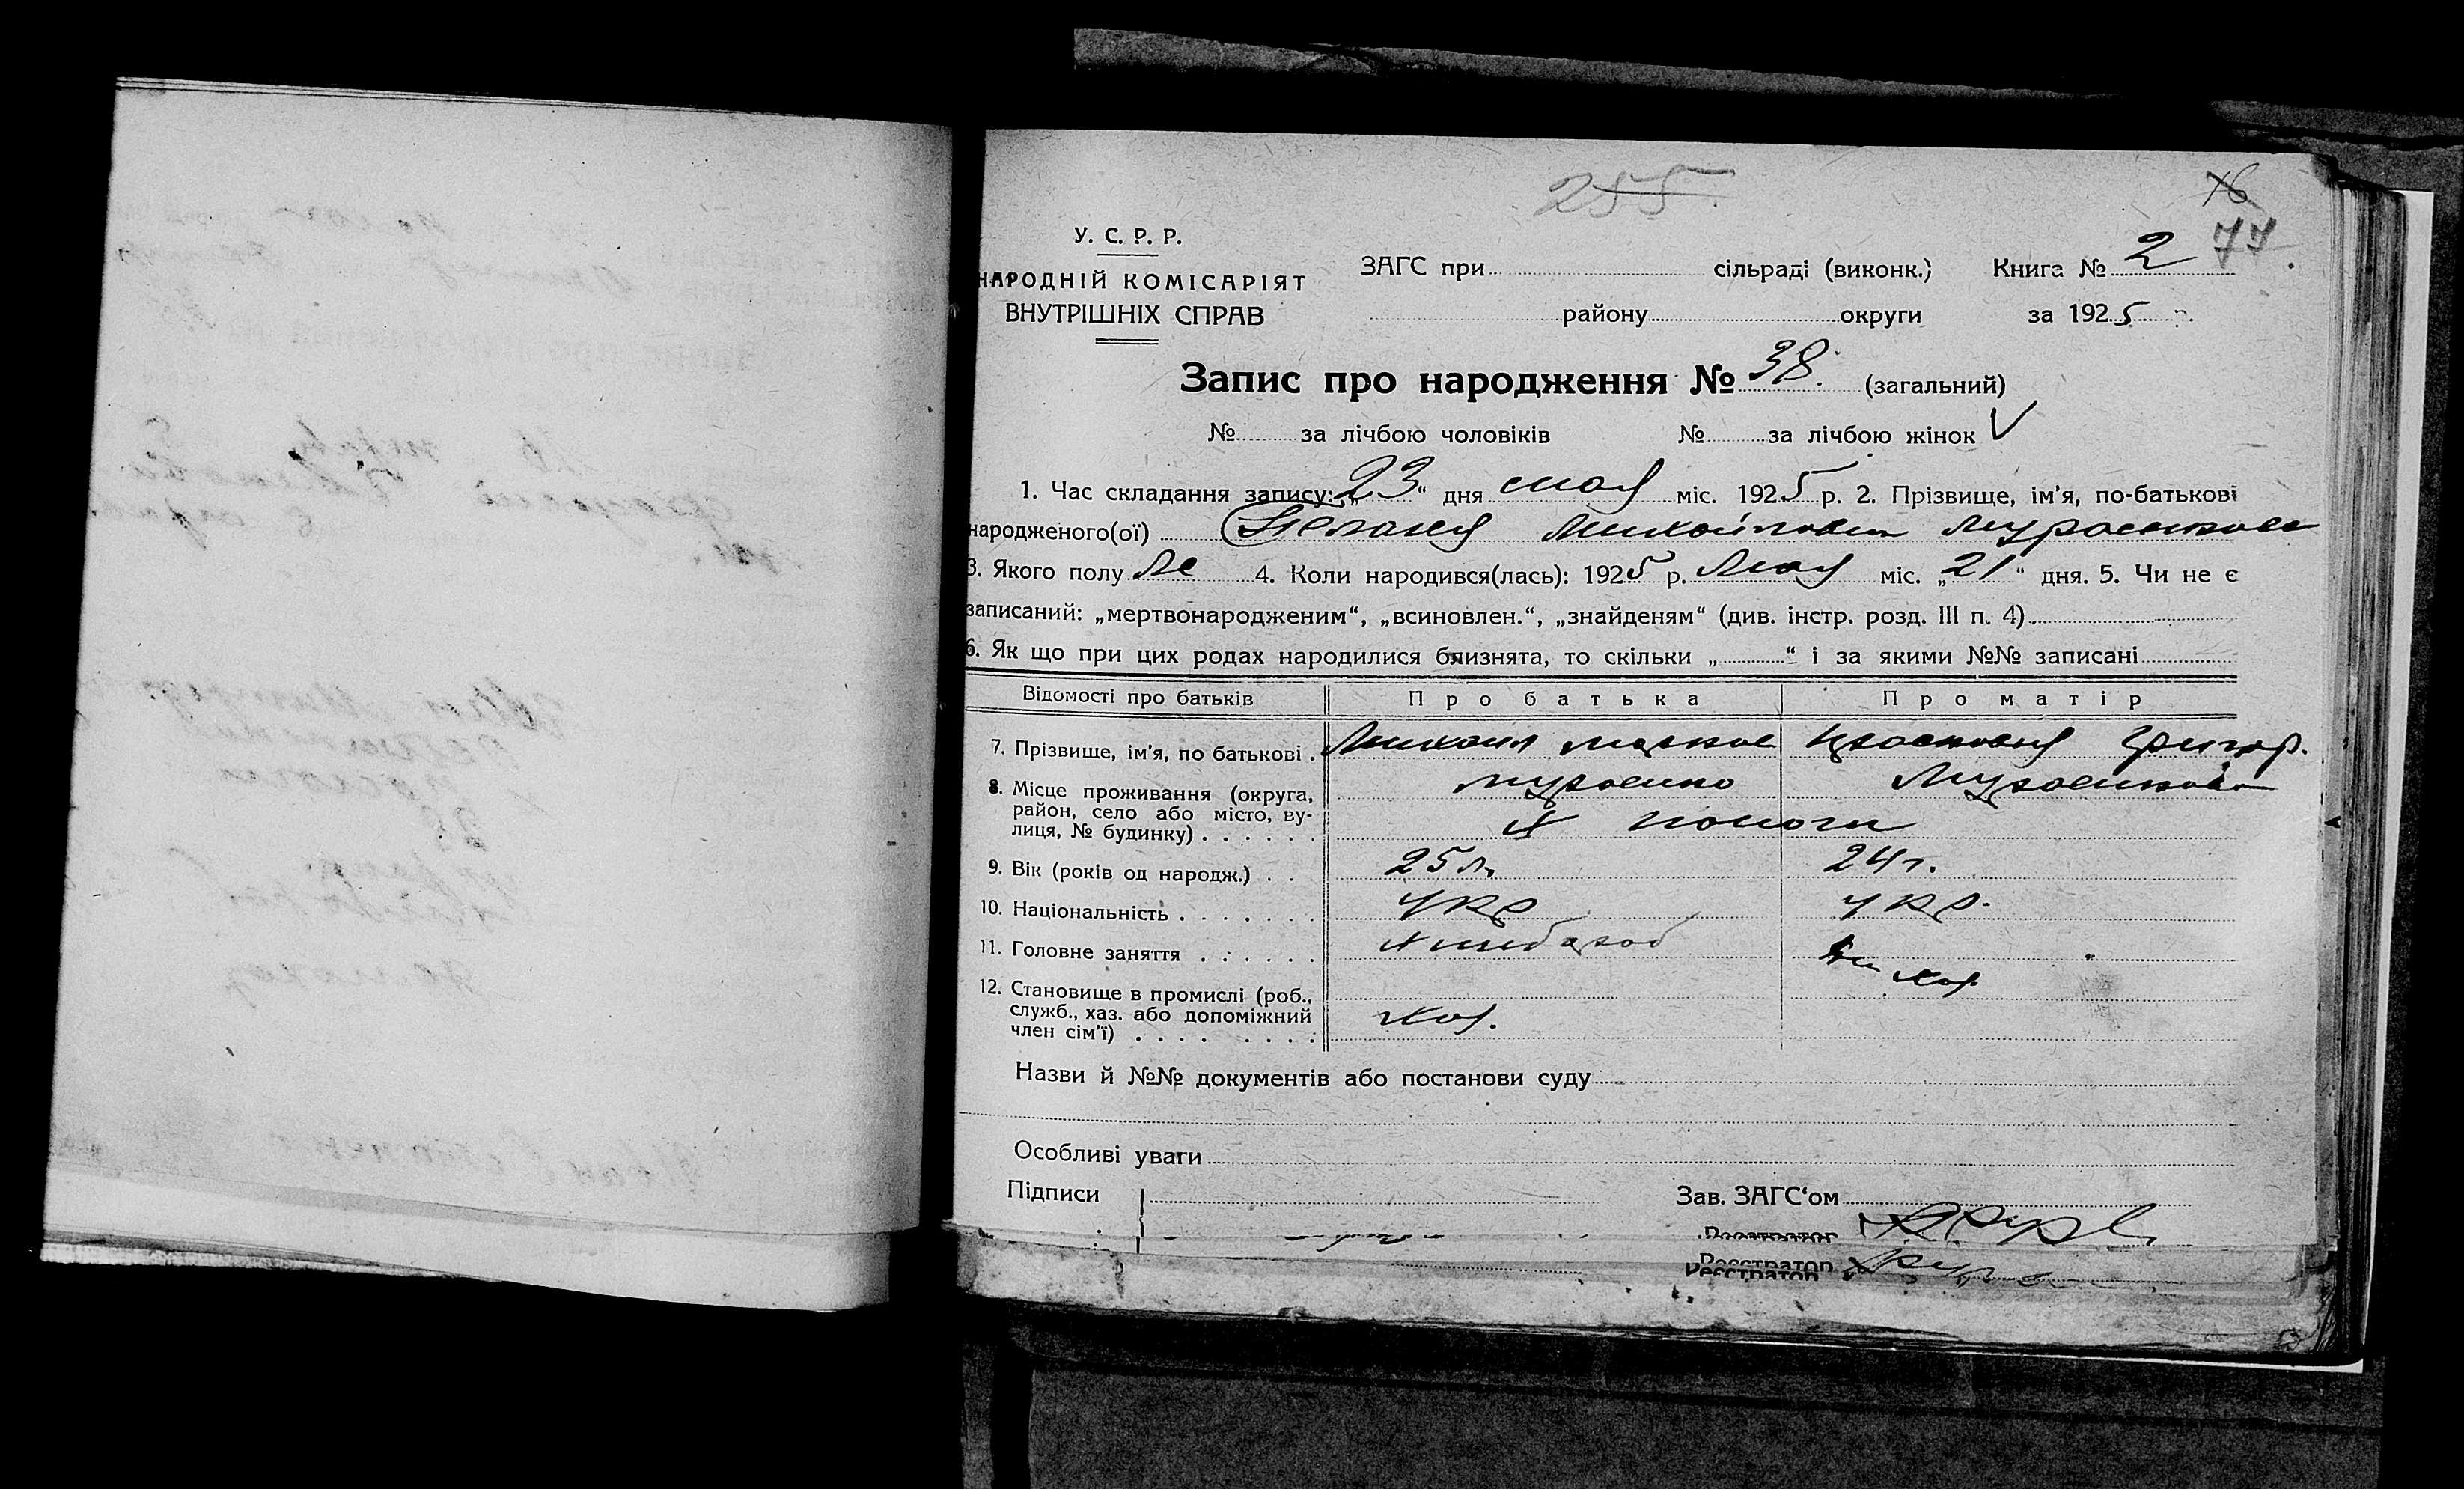 255.
76
77.
У. С. Р. Р.
НАРОДНІЙ КОМІСАРІЯТ
ВНУТРІШНІХ СПРАВ
ЗАГС при сільраді (виконк.) Книга № 2
району округи за 1925 р.
Запис про народження № 38. (загальний)
№ за лічбою чоловіків № за лічбою жінок V
1. Час складання запису: „23“ дня мая міс. 1925 р. 2. Прізвище, ім'я, по-батькові
народженого(ої) Михайловна
3. Якого полу же 4. Коли народився(лась): 1925 р. Мая міс. „21“ дня. 5. Чи не є
записаний: „мертвонародженим“, „всиновлен.“, „знайденям“ (див. інстр. розд. III п. 4)
6. Як що при цих родах народилися близнята, то скільки „ “ і за якими №№ записані
Відомості про батьків Про батька Про матір
7. Прізвище, ім'я, по батькові . Михаил Прасковия Григор.
8. Місце проживання (округа,
район, село або місто, ву-
лиця, № будинку) . . . . . . х
9. Вік (років од народж.) . . 25 л. 24 г.
10. Національність . . . . . . . укр укр.
11. Головне заняття . . . . . . хлибороб
12. Становище в промислі (роб.,
служб., хаз. або допоміжний
член сім'ї) . . . . . . . . хоз.
Назви й №№ документів або постанови суду
Особливі уваги
Підписи Зав. ЗАГС'ом
Реєстратор
Реєстратор
Реєстратор